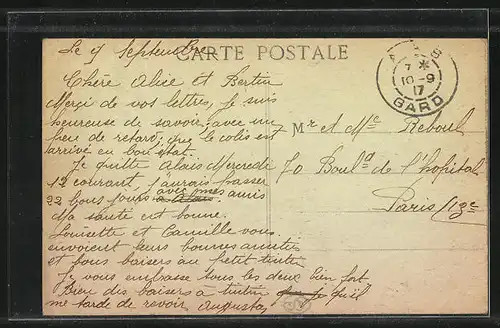 CARTE POSTALE
Le 9 Septembre
Chère Alice et Bertin
Merci de vos lettres, je suis
heureuse de savoir, avec un
peu de retard, que le colis est
arrivé en bon état
Je quitte Alais Mercredi
12 courant, j'aurais passer
22 bons jours avec mes amis
Ma santé est bonne.
Louisette et Camille vous
envoient leurs bonnes amitiés
et bons baisers au petit tintin
Je vous embrasse tous les deux bien fort
bien dis baisers à tintin qu'il
me tarde de revoir Augusta
7 *
10-9
17
GARD
Mr et Me Reboul
70 Bould de l'hôpital
Paris / 13e